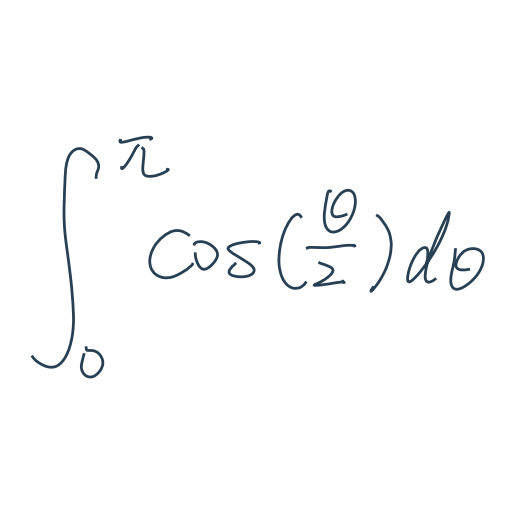 $\int_0^\pi \cos(\frac{\theta}{2}) d\theta$